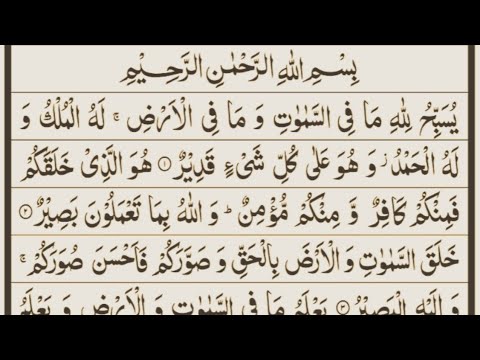 بِسْمِ اللّٰهِ الرَّحْمٰنِ الرَّحِیْمِ
یُسَبِّحُ لِلّٰهِ مَا فِی السَّمٰوٰتِ وَ مَا فِی الْاَرْضِ ۚ لَهُ الْمُلْكُ وَ
لَهُ الْحَمْدُ ؗ وَ هُوَ عَلٰی كُلِّ شَیْءٍ قَدِیْرٌ ۝۱ هُوَ الَّذِیْ خَلَقَكُمْ
فَمِنْكُمْ كَافِرٌ وَّ مِنْكُمْ مُّؤْمِنٌ ؕ وَ اللّٰهُ بِمَا تَعْمَلُوْنَ بَصِیْرٌ ۝۲
خَلَقَ السَّمٰوٰتِ وَ الْاَرْضَ بِالْحَقِّ وَ صَوَّرَكُمْ فَاَحْسَنَ صُوَرَكُمْ ۚ
وَ اِلَیْهِ الْمَصِیْرُ ۝۳ یَعْلَمُ مَا فِی السَّمٰوٰتِ وَ الْاَرْضِ وَ یَعْلَمُ